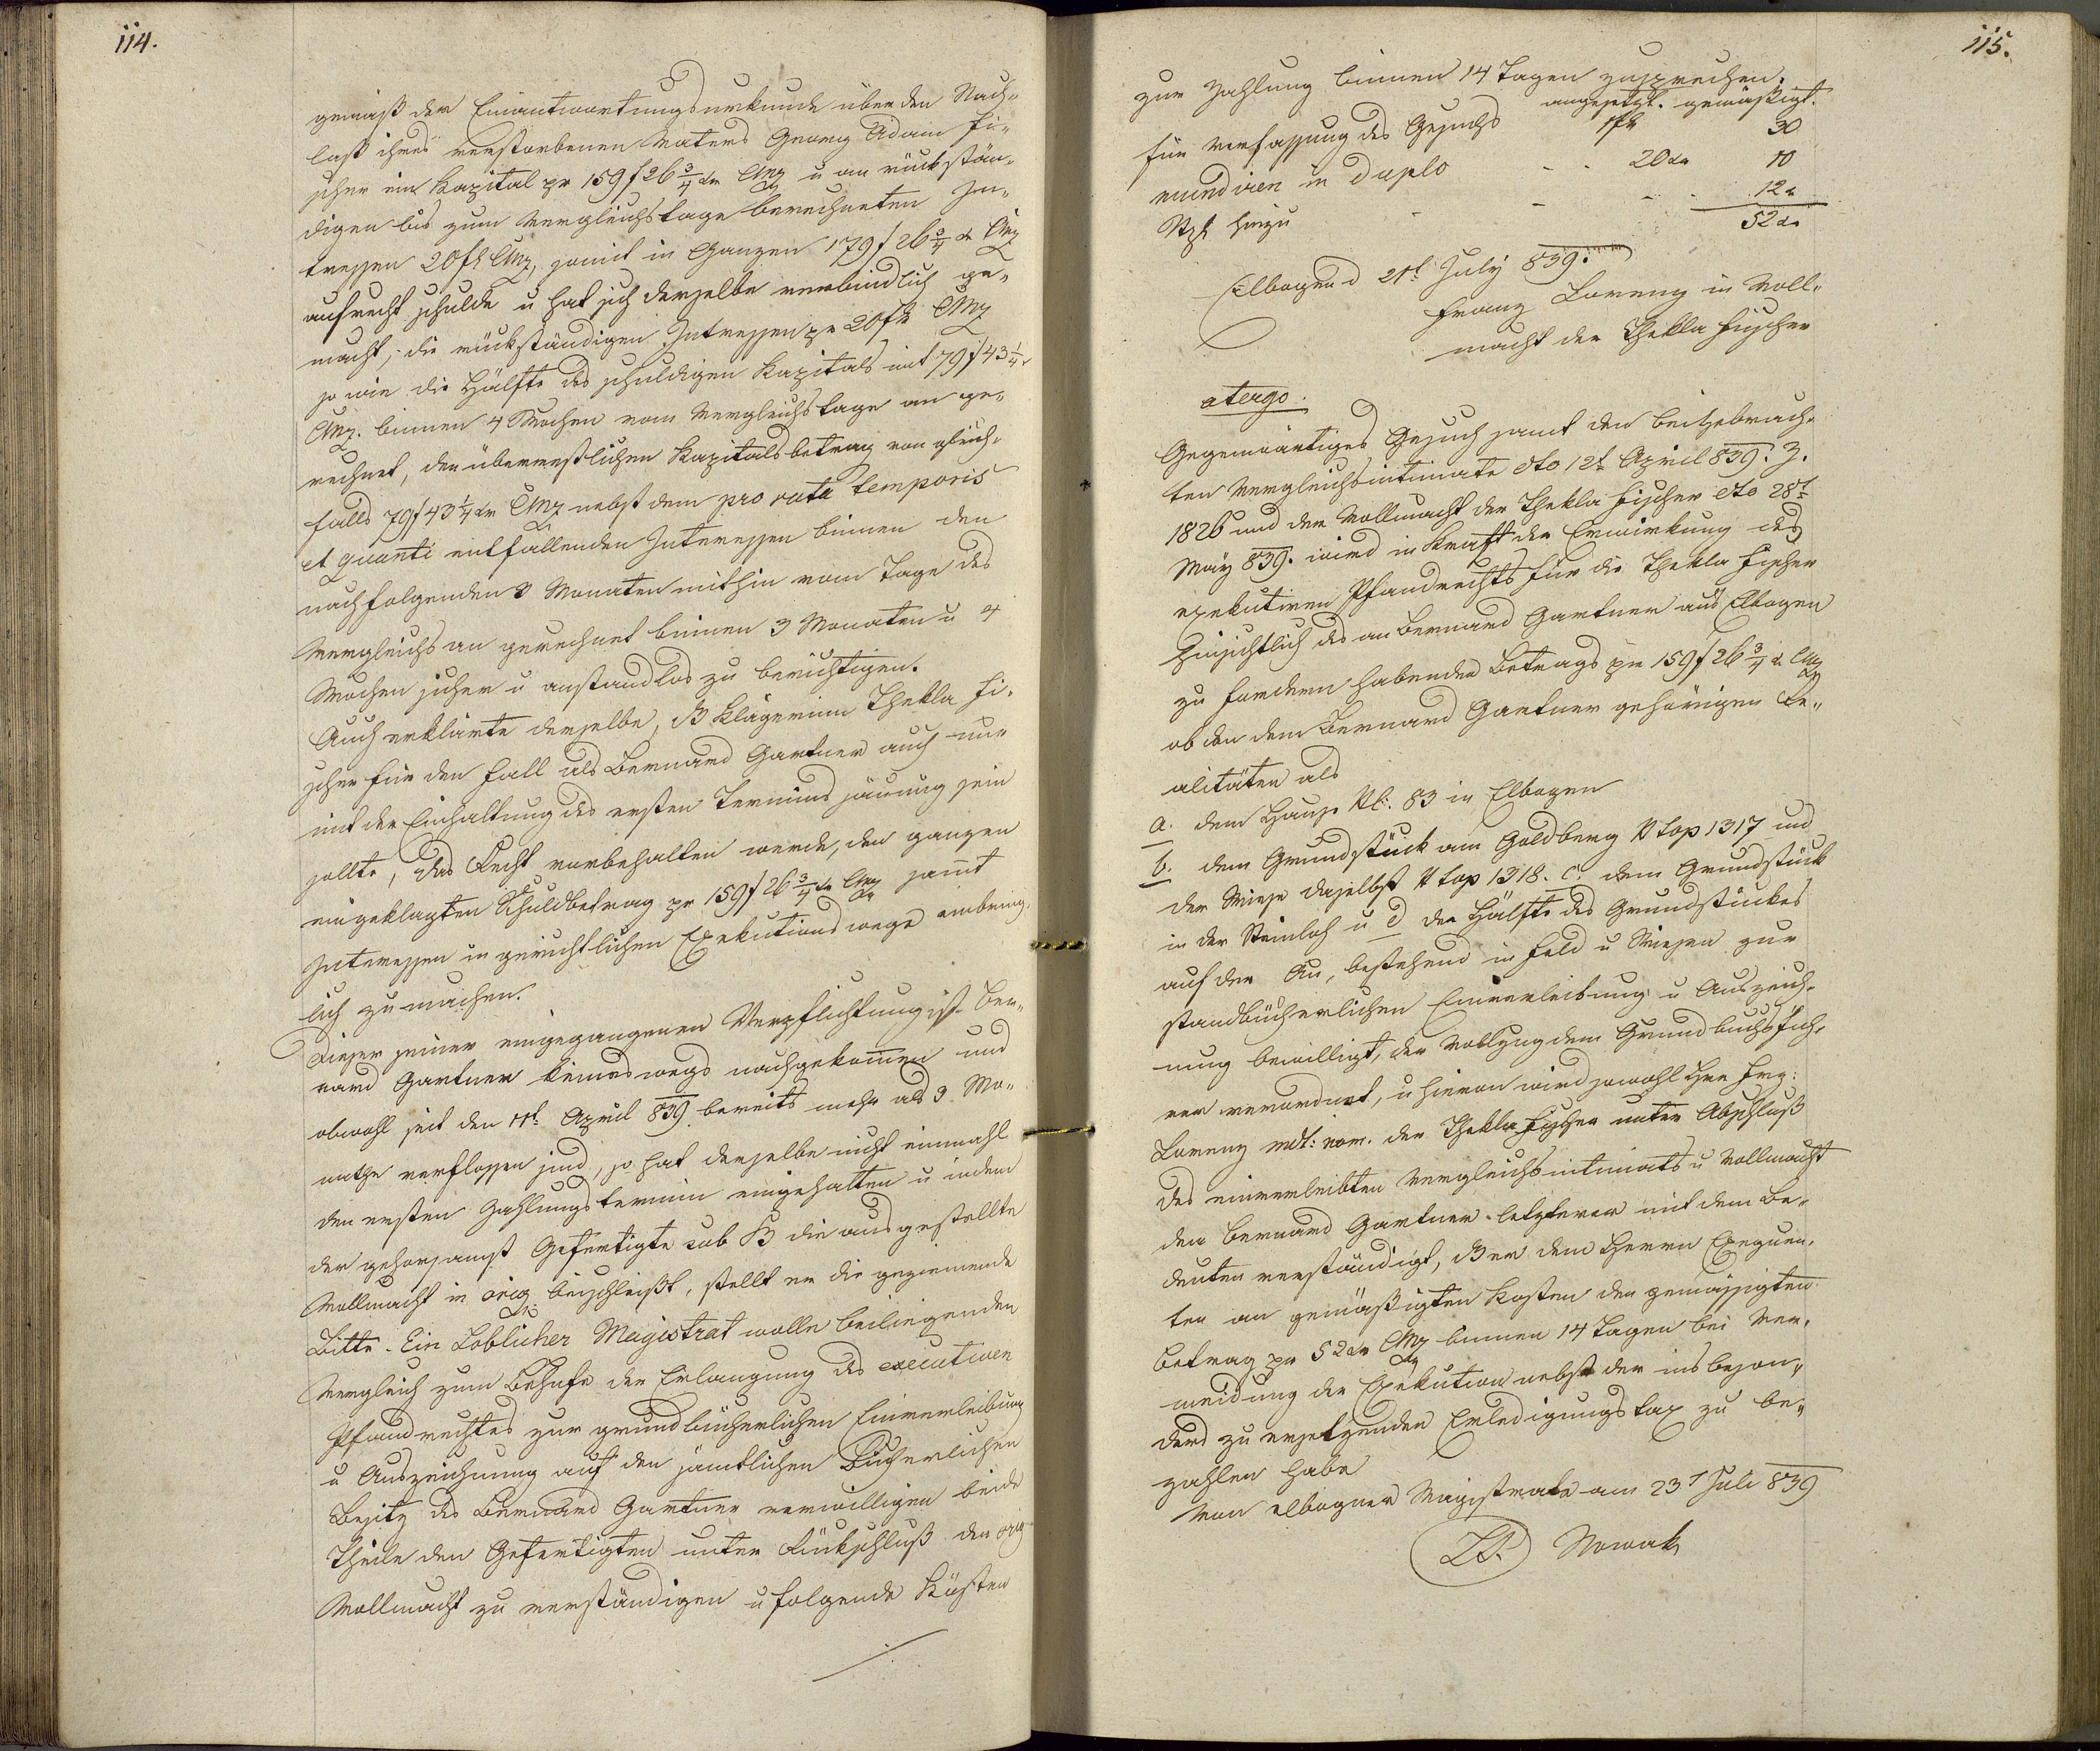 114.
gemäß der Einantwortungsurkunde über den Nach-
laß ihres verstorbenen Vaters Georg Adam Fi-
scher ein Kapital pr 159 f 26 3/4 xr CMz u an rückstän-
digen bis zum Vergleichstage berechneten In-
tressen 20 fl CMz, somit in Ganzen 179 f 26 3/4 xr CMz
aufrecht schulde u hat sich derselbe verbindlich ge-
macht, die rückständigen Intressen pr 20 fl CMz
so wie die Hälfte des schuldigen Kapitals mit 79 f 43 1/4 x
CMz. binnen 4 Wochen vom Vergleichstage an ge-
rechnet, den überrestlichen Kapitalsbetrag von gleich-
falls 79 f 43 1/4 xr CMz nebst dem pro rata temporis
et quanti entfallenden Interessen binnen den
nachfolgenden 3 Monaten mithin vom Tage des
Vergleichs an gerechnet binnen 3 Monaten u 4
Wochen sicher u anstandlos zu berichtigen.
Auch erklärte derselbe, dß Klägerinn Thekla Fi-
scher für den Fall als Bernard Gartner auch nur
mit der Einhaltung des ersten Termins säumig sein
sollte, das Recht vorbehalten werde, den ganzen
eingeklagten Schuldbetrag pr 159 f 26 3/4 xr CMz samt
Interessen in gerichtlichen Exekutionswege einbring-
lich zu machen.
Dieser seiner eingegangenen Verpflichtung ist Ber-
nard Gartner keineswegs nachgekommen und
obwohl seit den 11t April 839 bereits mehr als 3 Mo-
nathe verflossen sind, so hat derselbe nicht einmahl
den ersten Zahlungstermin eingehalten u indem
der gehorsamst Gefertigte sub B die ausgestellte
Vollmacht in orig beischließt, stellt er die geziemende
Bitte. Ein Löblicher Magistrat wolle beiliegenden
Vergleich zum Behufe der Erlangung des executiven
Pfandrechtes zur grundbücherlichen Einverleibung
u Auszeichnung auf den sämtlichen bücherlichen
Besitz des Bernard Gartner verwilligen beide
Theile den Gefertigten unter Rückschluß der orig
Vollmacht zu verständigen u folgende Kösten
115.
zur Zahlung binnen 14 Tagen zusprechen.
angesetzt. gemäßigt.
für Verfassung des Gesuchs 1 fl 30
mundiren in duplo - - 20 xr 10
Stpl hiezu - - - 12 x
52 xr
Elbogen d 21t July 839.
Franz Lorenz in Voll-
macht der Thekla Fischer
atergo.
Gegenwärtiges Gesuch samt den beigebrach-
ten Vergleichsintimate dto 12t April 839. Z.
1826 und der Vollmacht der Thekla Fischer dto 28t
May 839. wird in Kraft der Erwirkung des
exekutiven Pfandrechts für die Thekla Fischer
hinsichtlich des an Bernard Gartner aus Elbogen
zu fordern habenden Betrags pr 159 f 26 3/4 x CMz
ob den dem Bernard Gartner gehörigen Re-
alitäten als
a. dem Hause N: 83 in Elbogen
b. dem Grundstück am Goldberg N top 1317 und
der Wiese daselbst N top 1318. c. dem Grundstück
in der Steinloh u d der Hälfte des Grundstückes
auf der Au, bestehend in Feld u Wiesen zur
standbücherlichen Einverleibung u Auszeich-
nung bewilligt, der Vollzug dem Grundbuchsfüh-
rer verordnet, u hievon wird sowohl Hr Frz:
Lorenz mdt: nom. der Thekla Fischer unter Abschluß
des einverleibten Vergleichsintimats u Vollmacht
den Bernard Gartner letzterer mit dem Be-
deuten verständigt, dß er dem Herrn Exequen-
ten an gemäßigten Kosten den gemässigten
Betrag pr 52 xr CMz binnen 14 Tagen bei Ver-
meidung der Exekution nebst der insbeson-
ders zu ersetzenden Erledigungstax zu be-
zahlen habe
Von elbogner Magistrate am 23t Juli 839
LS. Nowak